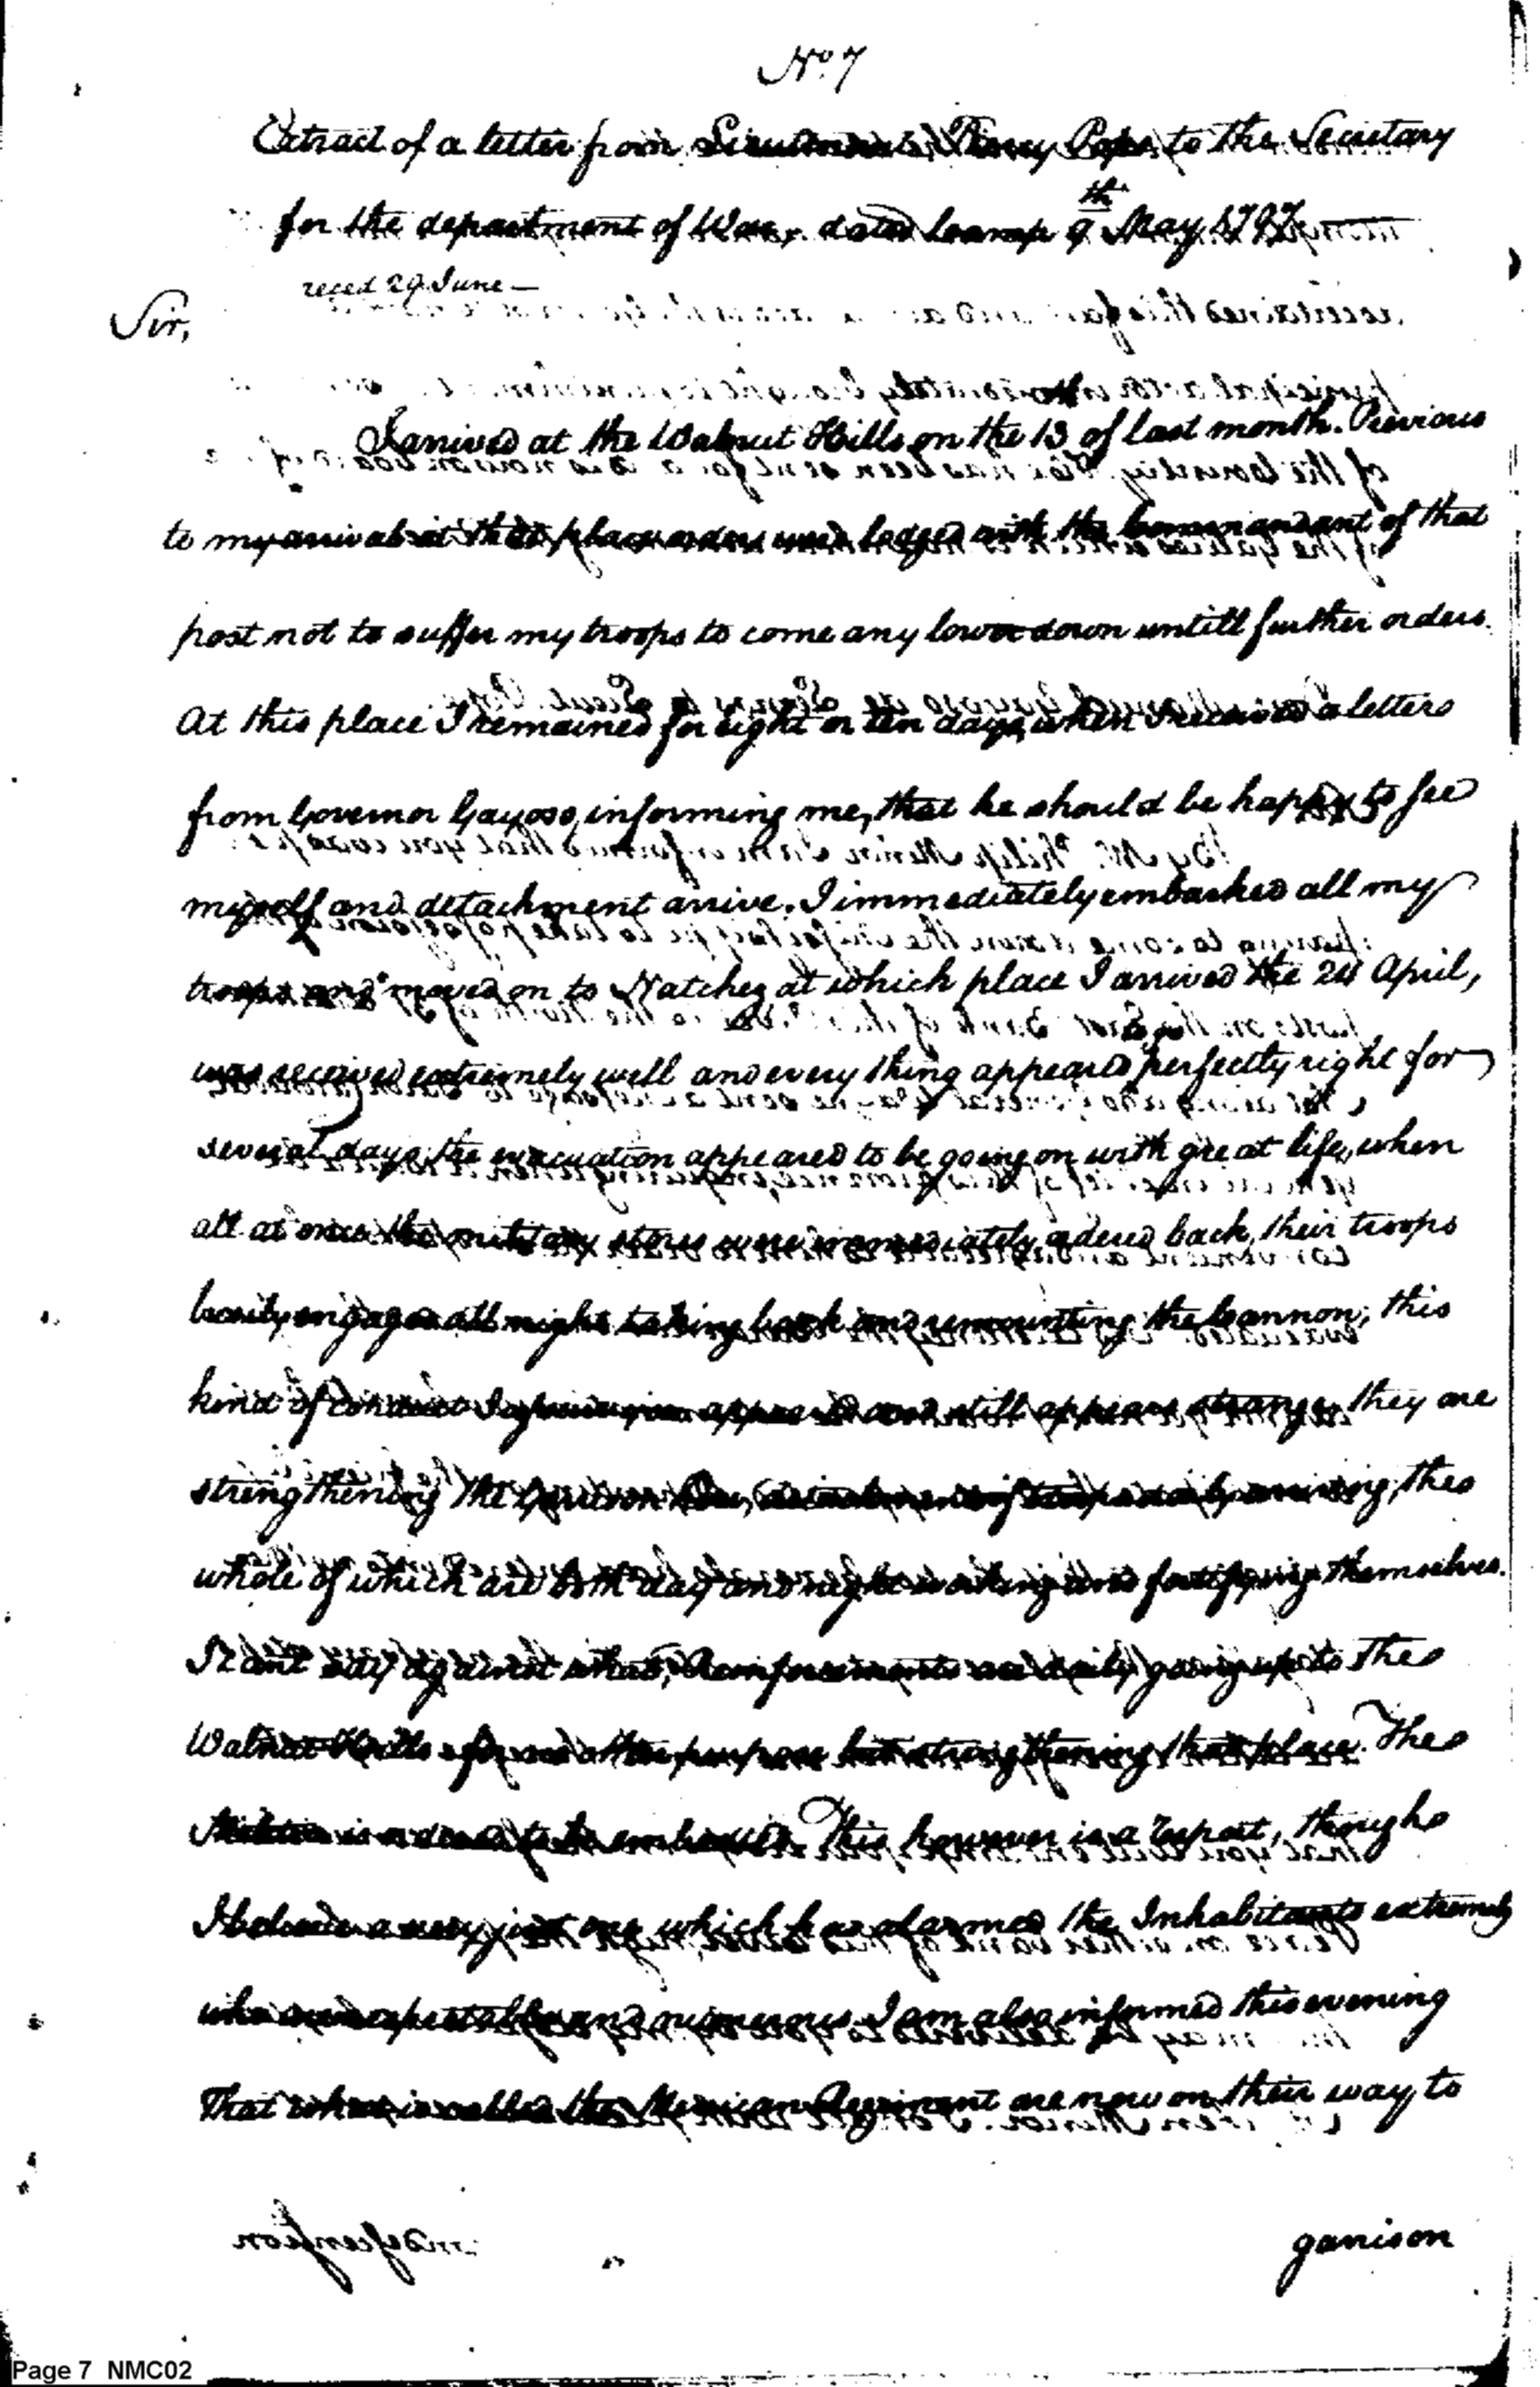 No. 7
Extract of a letter from Lieutenant Percy Pope to the Secretary
for the department of War, dated Camp 9th May 1797
reced 29 June —
Sir,
I arrived at the Walnut Hills on the 13 of last month. Previous
to my arrival at that place orders were lodged with the Commandant of that
post not to suffer my troops to come any lower down untill further orders.
At this place I remained for eight or ten days, when I received a letter
from Governor Gayoso, informing me, that he should be happy to see
myself and detachment arrive. I immediately embarked all my
troops and moved on to Natchez at which place I arrived the 24 April,
was received extremely well and every thing appeared perfectly right for
several days, the evacuation appeared to be going on with great life, when
all at once the military stores were immediately ordered back, their troops
busily engaged all night taking back and remounting the Cannon, this
kind of conduct appeared and still appears strange, they are
strengthening the Garrison detachments of troops daily arriving, the
whole of which are both day and night working and fortifying themselves.
I cant say against what, Reinforcements are daily going up to the
Walnut Hills for no other purpose but strengthening that place. The
Militia is ordered to be embodied. This however is a report, though
I believe a very just one, which has alarmed the Inhabitants extremely
who are respectable and numerous. I am also informed this evening
That what is called the Mexican Regiment are now on their way to
garrison
Page 7 NMC02